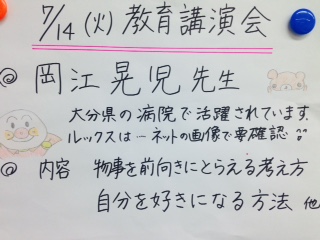 7/14(火)教育講演会
◎ 岡江晃児先生
大分県の病院で活躍されています。
ルックスは…ネットの画像で要確認!!
◎ 内容 物事を前向きにとらえる考え方
自分を好きになる方法 他